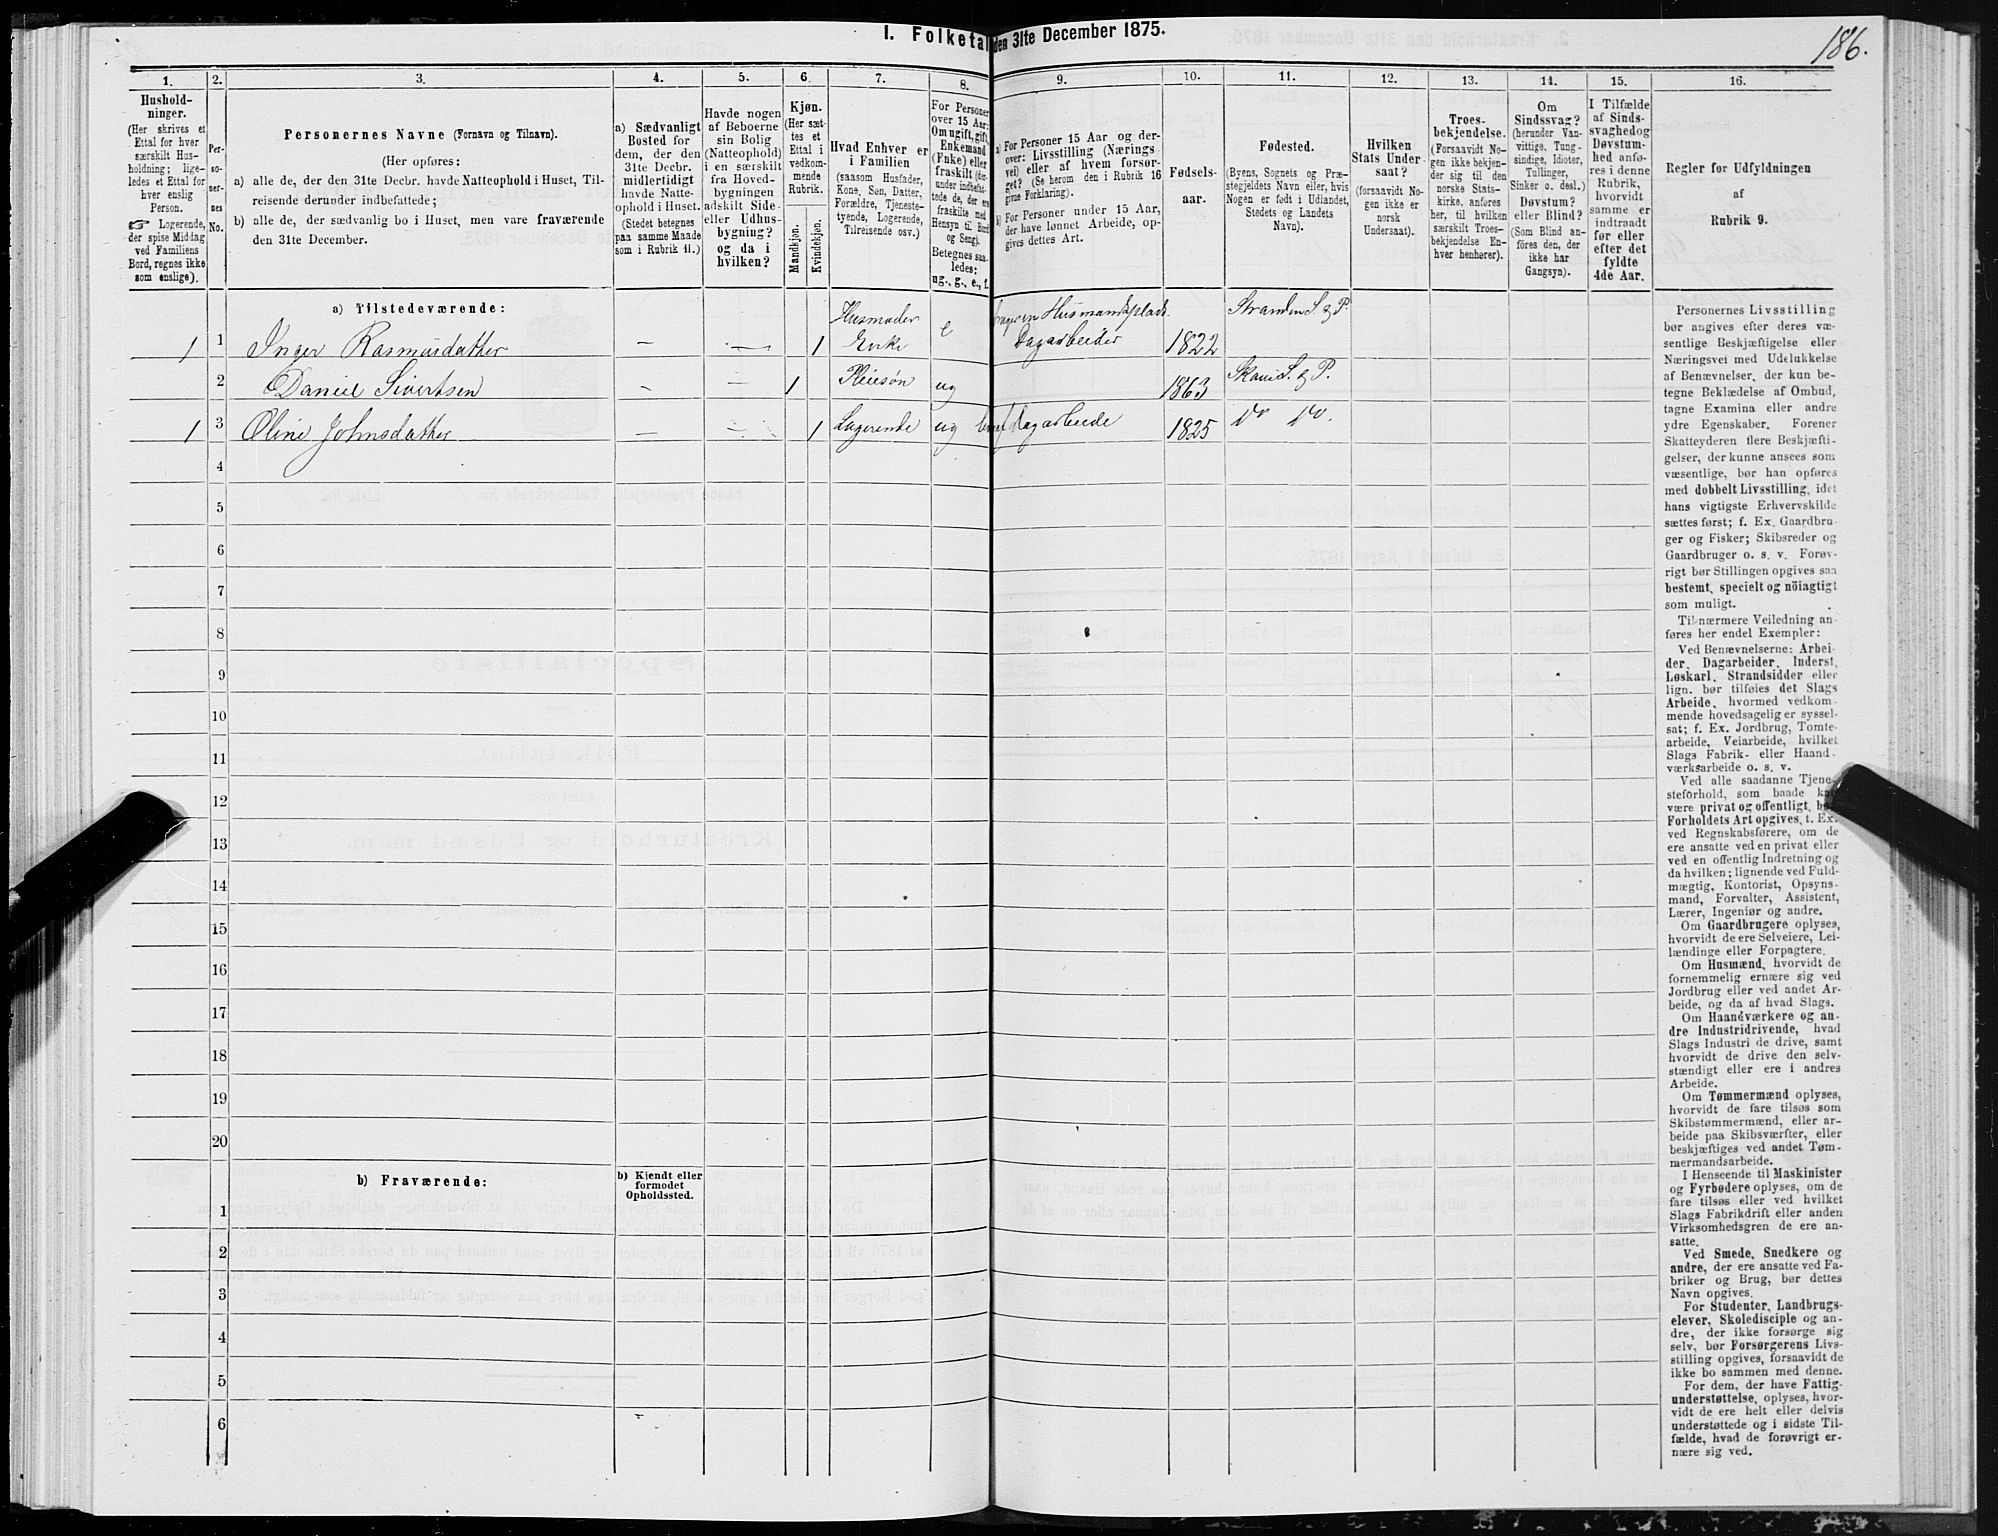 I. Folketal den 31te December 1875.
186.
1. 2. 3. 4. 5. 6. 7. 8. 9. 10. 11. 12. 13. 14. 15. 16.
Hushold-
ninger.
(Her skrives et
Ettal for hver
særskilt Hus-
holdning; lige-
ledes et Ettal for
hver enslig
Person.
☞ Logerende,
der spise Middag
ved Familiens
Bord, regnes ikke
som enslige).
Per-
so-
ner-
nes
No.
Personernes Navne (Fornavn og Tilnavn).
(Her opføres:
a) alle de, der den 31te Decbr. havde Natteophold i Huset, Til-
reisende derunder indbefattede;
b) alle de, der sædvanlig bo i Huset, men vare fraværende
den 31te December.
a) Sædvanligt
Bosted for
dem, der den
31te Decbr.
midlertidigt
havde Natte-
ophold i Huset.
(Stedet betegnes
paa samme Maade
som i Rubrik 11.)
Havde nogen
af Beboerne
sin Bolig
(Natteophold)
i en særskilt
fra Hoved-
bygningen
adskilt Side-
eller Udhus-
bygning?
og da i
hvilken?
Kjøn.
(Her sæt-
tes et
Ettal i
vedkom-
mende
Rubrik.
Mandkjøn.
Kvindekjøn.
Hvad Enhver er
i Familien
(saasom Husfader,
Kone, Søn, Datter,
Forældre, Tjeneste-
tyende, Logerende,
Tilreisende osv.)
For Personer
over 15 Aar:
Om ugift, gift,
Enkemand
(Enke) eller
fraskilt (der-
under indbefat-
tede de, der ere
fraskilte med
Hensyn til Bord
og Seng).
Betegnes saa-
ledes:
ug., g., e., f.
a) For Personer 15 Aar og der-
over: Livsstilling (Nærings-
vei) eller af hvem forsør-
get? (Se herom den i Rubrik 16
givne Forklaring).
b) For Personer under 15 Aar,
der have lønnet Arbeide, op-
gives dettes Art.
Fødsels-
aar.
Fødested.
(Byens, Sognets og Præ-
stegjeldets Navn eller, hvis
Nogen er født i Udlandet,
Stedets og Landets
Navn).
Hvilken
Stats Under-
saat?
(forsaavidt No-
gen ikke er
norsk
Undersaat).
Troes-
bekjendelse.
(Forsaavidt No-
gen ikke bekjen-
der sig til den
norske Stats-
kirke, anføres
her, til hvilken
særskilt Troes-
bekjendelse En-
hver henhører).
Om
Sindssvag?
(herunder Van-
vittige, Tung-
sindige, Idioter,
Tullinger,
Sinker o. desl.)
Døvstum?
eller Blind?
(Som Blind an-
føres den, der
ikke har
Gangsyn).
I Tilfælde
af Sinds-
svaghedog
Døvstum-
hed anfø-
res i denne
Rubrik,
hvorvidt
samme er
indtraadt
før eller
efter det
fyldte
4de Aar.
Regler for Udfyldningen
af
Rubrik 9.
a) Tilstedeværende:
1 1 Inger Rasmusdatter — — 1 Husmoder Enke e bruger en Husmandsplads. Dagarbeider 1822 Stranden S. & P.
2 Daniel Sivertsen — — 1 Pleiesøn ug 1863 Skaui S. & P.
1 3 Oline Johnsdatter — — 1 Logerende ug dagarbeide 1825 Do Do.
4
5
6
7
8
9
10
11
12
13
14
15
16
17
18
19
20
b) Fraværende:
b) Kjendt eller
formodet
Opholdssted.
1
2
3
4
5
6
Personernes Livsstilling
bør angives efter deres væ-
sentlige Beskjæftigelse eller
Næringsvei med Udelukkelse
af Benævnelser, der kun be-
tegne Beklædelse af Ombud,
tagne Examina eller andre
ydre Egenskaber. Forener
Skatteyderen flere Beskjæfti-
gelser, der kunne ansees som
væsentlige, bør han opføres
med dobbelt Livsstilling, idet
hans vigtigste Erhvervskilde
sættes først; f. Ex. Gaardbru-
ger og Fisker; Skibsreder og
Gaardbruger o. s. v. Forøv-
rigt bør Stillingen opgives saa
bestemt, specielt og nöiagtigt
som muligt.
Til nærmere Veiledning an-
føres her endel Exempler:
Ved Benævnelserne: Arbei-
der, Dagarbeider, Inderst,
Løskarl, Strandsidder eller
lign. bør tilføies det Slags
Arbeide, hvormed vedkom-
mende hovedsagelig er syssel-
sat; f. Ex. Jordbrug, Tomte-
arbeide, Veiarbeide, hvilket
Slags Fabrik- eller Haand-
værksarbeide o. s. v.
Ved alle saadanne Tjene-
steforhold, som baade kan
være privat og offentligt, bør
Forholdets Art opgives, t. Ex.
ved Regnskabsførere, om de
ere ansatte ved en privat eller
ved en offentlig Indretning og
da hvilken; lignende ved Fuld-
mægtig, Kontorist, Opsyns-
mand, Forvalter, Assistent,
Lærer, Ingeniør og andre.
Om Gaardbrugere oplyses,
hvorvidt de ere Selveiere, Lei-
lændinge eller Forpagtere.
Om Husmænd, hvorvidt de
fornemmelig ernære sig ved
Jordbrug eller ved andet Ar-
beide, og da af hvad Slags.
Om Haandværkere og an-
dre Industridrivende, hvad
Slags Industri de drive, samt
hvorvidt de drive den selv-
stændigt eller ere i andres
Arbeide.
Om Tømmermænd oplyses,
hvorvidt de fare tilsøs som
Skibstømmermænd, eller ar-
beide paa Skibsværfter, eller
beskjæftiges ved andet Tøm-
mermandsarbeide.
I Henseende til Maskinister
og Fyrbødere oplyses, om de
fare tilsøs eller ved hvilket
Slags Fabrikdrift eller anden
Virksomhedsgren de ere an-
satte.
Ved Smede, Snedkere og
andre, der ere ansatte ved Fa-
briker og Brug, bør dettes
Navn opgives.
For Studenter, Landbrugs-
elever, Skoledisciple og an-
dre, der ikke forsørge sig
selv, bør Forsørgerens Livs-
stilling opgives, forsaavidt de
ikke bo sammen med denne.
For dem, der have Fattig-
understøttelse, oplyses, hvor-
vidt de ere helt eller delvis
understøttede og i sidste Til-
fælde, hvad de forøvrigt er-
nære sig ved.